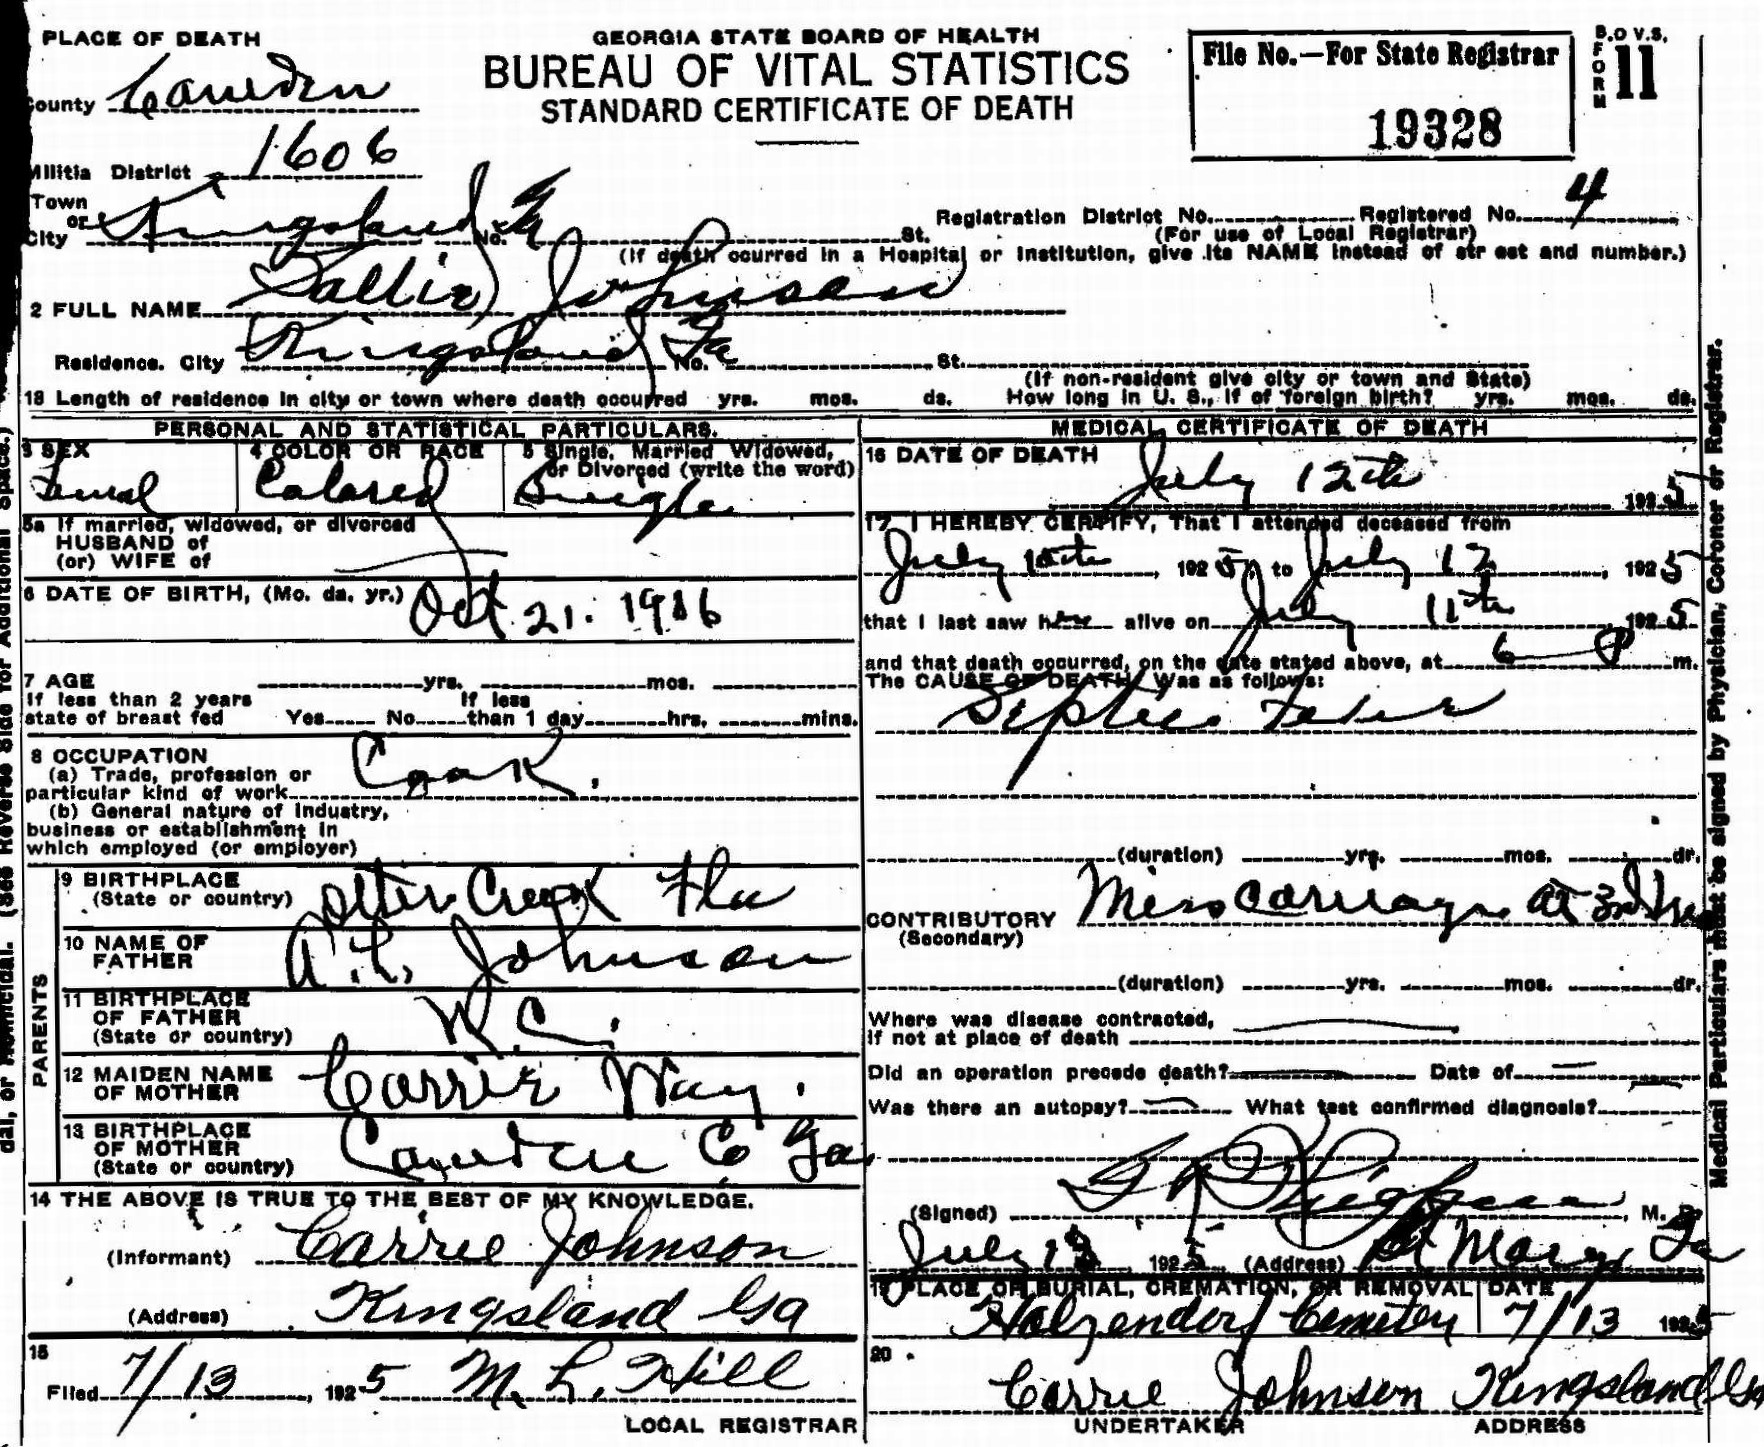 PLACE OF DEATH
GEORGIA STATE BOARD OF HEALTH
BUREAU OF VITAL STATISTICS
STANDARD CERTIFICATE OF DEATH
File No.—For State Registrar
19328
B.O V.S.
FORM 11
County Camden
Militia District 1606
Town or City Kingsland Ga No. St.
Registration District No. Registered No. 4
(For use of Local Registrar)
(If death ocurred in a Hospital or Institution, give its NAME instead of str eet and number.)
2 FULL NAME Sallie Johnson
Residence. City Kingsland Ga No. St.
(If non-resident give city or town and State)
18 Length of residence in city or town where death occurred yrs. mos. ds. How long in U. S., if of foreign birth? yrs. mos. ds.
PERSONAL AND STATISTICAL PARTICULARS.
3 SEX
4 COLOR OR RACE
5 Single, Married Widowed,
or Divorced (write the word)
Femal Colored Single
5a If married, widowed, or divorced
HUSBAND of
(or) WIFE of
6 DATE OF BIRTH, (Mo. da. yr.) Oct 21. 1906
7 AGE yrs. mos.
If less than 2 years If less
state of breast fed Yes No than 1 day hrs. mins.
8 OCCUPATION
(a) Trade, profession or
particular kind of work Cook.
(b) General nature of Industry,
business or establishment in
which employed (or employer)
PARENTS
9 BIRTHPLACE
(State or country) Otter Creek Fla
10 NAME OF
FATHER A. L. Johnson
11 BIRTHPLACE
OF FATHER
(State or country) N.C.
12 MAIDEN NAME
OF MOTHER Carrie Way.
13 BIRTHPLACE
OF MOTHER
(State or country) Camden Co Ga.
14 THE ABOVE IS TRUE TO THE BEST OF MY KNOWLEDGE.
(Informant) Carrie Johnson
(Address) Kingsland Ga
15
Filed 7/13, 1925 M. L. Hill
LOCAL REGISTRAR
MEDICAL CERTIFICATE OF DEATH
16 DATE OF DEATH
July 12th 1925
17 I HEREBY CERTIFY, That I attended deceased from
July 10th, 1925, to July 12, 1925
that I last saw her alive on July 11th 1925
and that death occurred, on the date stated above, at 6 P m.
The CAUSE OF DEATH, Was as follows:
Septic Fever
(duration) yrs. mos. dr.
CONTRIBUTORY Miss carriage at 3rd
(Secondary)
(duration) yrs. mos. dr.
Where was disease contracted,
if not at place of death
Did an operation precede death? Date of
Was there an autopsy? What test confirmed diagnosis?
(Signed) , M. D.
July 13 1925 (Address) St Marys Ga
19 PLACE OF BURIAL, CREMATION, OR REMOVAL DATE
Holzendorf Cemetery 7/13 1925
20
Carrie Johnson Kingsland Ga
UNDERTAKER ADDRESS
Medical Particulars must be signed by Physician, Coroner or Registrar.
dal, or Homicidal. (See Reverse Side for Additional Space.)